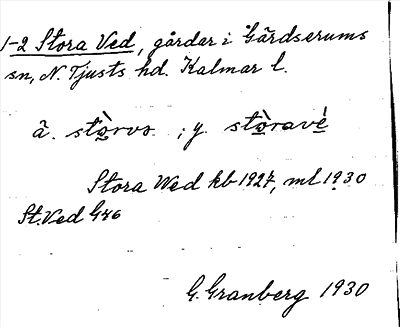 1-2 Stora Ved, gårdar i Gärdserums
sn, N. Tjusts hd. Kalmar l.
ä. stòrvə ; y. stòravé
Stora Wed kb 1927, ml 1930
St. Ved G46
G. Granberg 1930